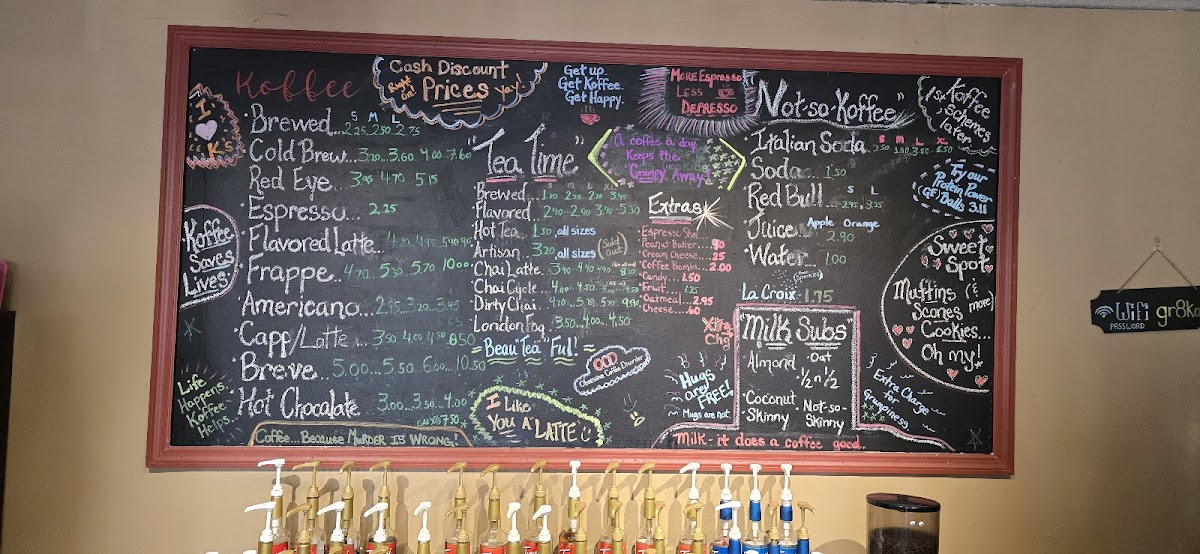 I
K's
Koffee
S M L
Brewed... 2.25 2.50 2.75
Cold Brew... 3.20...3.60 4.00 7.60
Red Eye... 3.95 4.70 5.15
Espresso... 2.25
Flavored Latte...
Frappe... 4.70... 5.30... 5.70 10.00
Americano... 2.95...3.20...3.45
Capp/Latte... 3.50 4.00 4.50 8.50
Breve... 5.00...5.50 6.00...10.50
Hot Chocolate 3.00...3.50...4.00
Koffee
Saves
Lives.
Life
Happens.
Koffee
Helps.
Coffee... Because MURDER IS WRONG!
Cash Discount
Right
On!
Prices yay!
Get up.
Get Koffee.
Get Happy.
More Espresso
Less
Depresso
"Tea Time"
Brewed...
Flavored...
Hot Tea... 1.50 all sizes
Artisan 3.20 all sizes
(Sold out)
Chai Latte...
Chai Cycle...
Dirty Chai
London Fog... 3.50...4.00...4.50
=Beau"Tea"Ful!=
I Like
You A LATTE
OCD
Obsessive Coffee Disorder
A coffee a day
Keeps the
"Grumpy" Away!
Extras
Espresso Shot
Peanut Butter... .90
Cream Cheese... .25
Coffee Bombs... 2.00
Candy... 1.50
Fruit... 1.25
Oatmeal... 2.95
Cheese... .60
Xtra
Chg
Hugs
are
FREE!
Mugs are not.
"Not-so-Koffee"
S M L XL
Italian Soda
Soda... 1.50
S L
Red Bull... 2.95 3.35
Apple Orange
Juice... 2.90
Water... 1.00
La Croix 1.75
"Milk Subs"
Almond
Oat
1/2 n 1/2
Coconut
Skinny
Not-so-
Skinny
Milk - it does a coffee good.
1st Koffee
Schemes
later
Try our
Protein Power
GF Balls 3.11
Sweet
Spot
Muffins (&
Scones more)
Cookies...
Oh my!
Extra Charge
for
Grumpiness
WiFi
PASSWORD